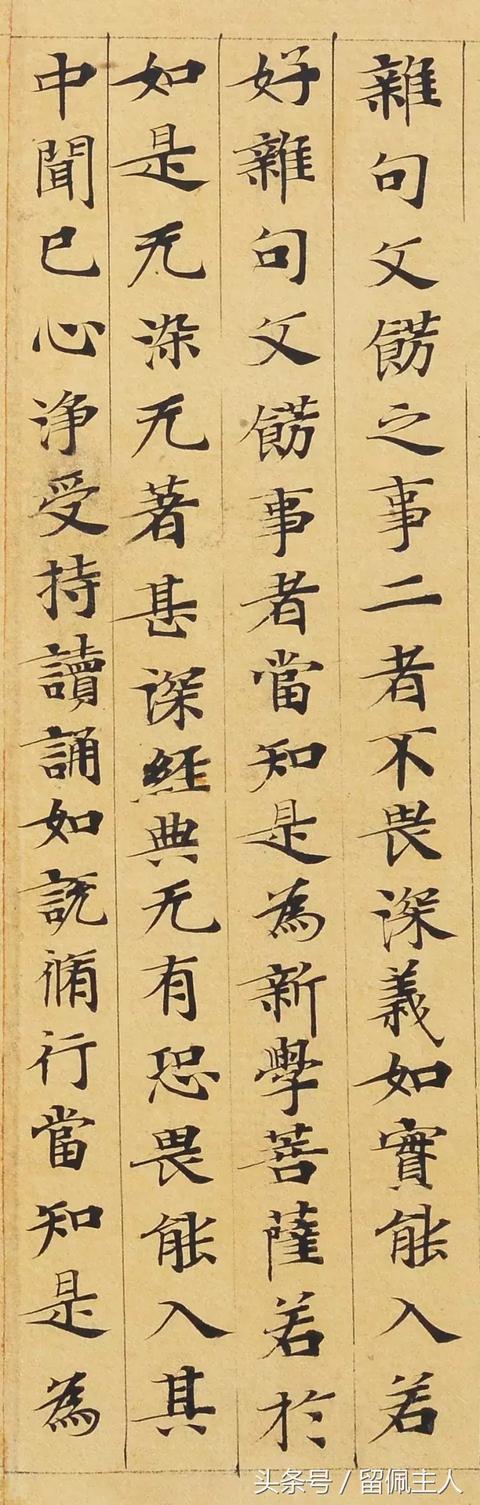 雜句文餝之事二者不畏深義如實能入若
好雜句文餝事者當知是為新學菩薩若於
如是无染无著甚深經典无有恐畏能入其
中聞已心淨受持讀誦如說脩行當知是為
头条号／留佩主人